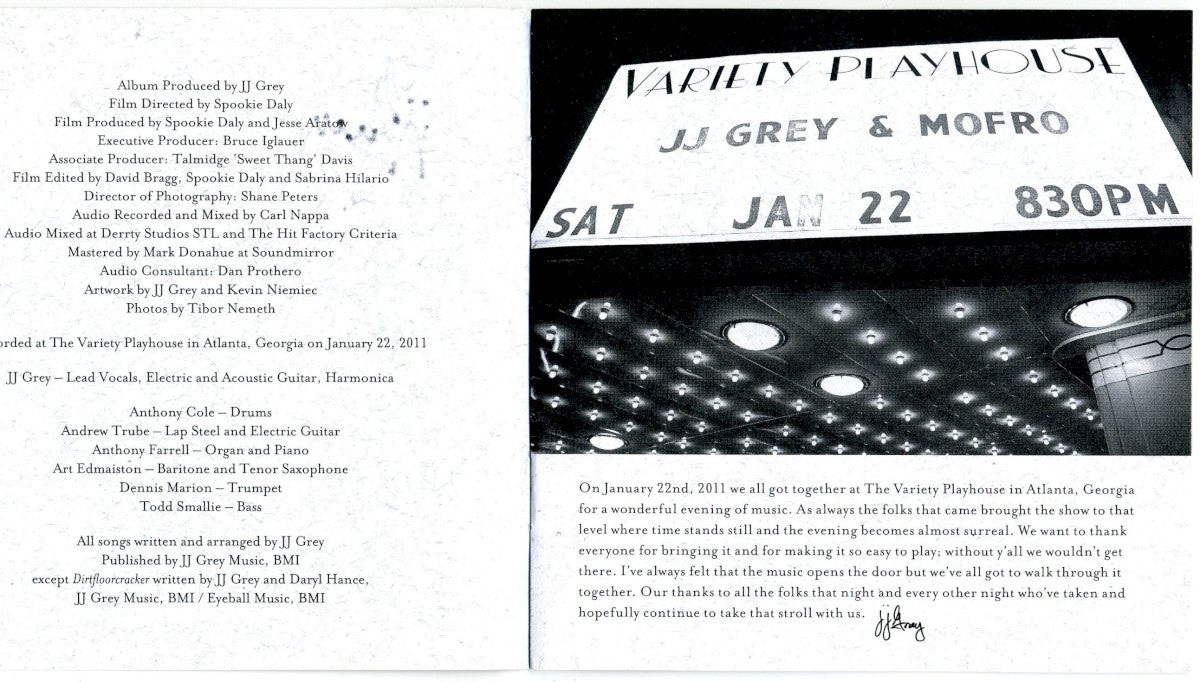 Album Produced by JJ Grey
Film Directed by Spookie Daly
Film Produced by Spookie Daly and Jesse Aratow
Executive Producer: Bruce Iglauer
Associate Producer: Talmidge 'Sweet Thang' Davis
Film Edited by David Bragg, Spookie Daly and Sabrina Hilario
Director of Photography: Shane Peters
Audio Recorded and Mixed by Carl Nappa
Audio Mixed at Derrty Studios STL and The Hit Factory Criteria
Mastered by Mark Donahue at Soundmirror
Audio Consultant: Dan Prothero
Artwork by JJ Grey and Kevin Niemiec
Photos by Tibor Nemeth
orded at The Variety Playhouse in Atlanta, Georgia on January 22, 2011
JJ Grey – Lead Vocals, Electric and Acoustic Guitar, Harmonica
Anthony Cole – Drums
Andrew Trube – Lap Steel and Electric Guitar
Anthony Farrell – Organ and Piano
Art Edmaiston – Baritone and Tenor Saxophone
Dennis Marion – Trumpet
Todd Smallie – Bass
All songs written and arranged by JJ Grey
Published by JJ Grey Music, BMI
except Dirtfloorcracker written by JJ Grey and Daryl Hance,
JJ Grey Music, BMI / Eyeball Music, BMI
VARIETY PLAYHOUSE
JJ GREY & MOFRO
SAT JAN 22 830PM
On January 22nd, 2011 we all got together at The Variety Playhouse in Atlanta, Georgia
for a wonderful evening of music. As always the folks that came brought the show to that
level where time stands still and the evening becomes almost surreal. We want to thank
everyone for bringing it and for making it so easy to play; without y'all we wouldn't get
there. I've always felt that the music opens the door but we've all got to walk through it
together. Our thanks to all the folks that night and every other night who've taken and
hopefully continue to take that stroll with us.
JJ Grey